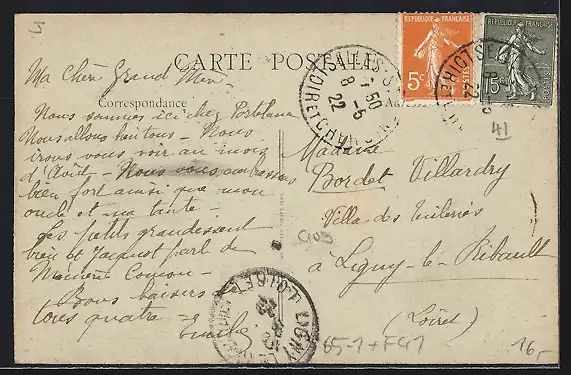 CARTE POSTALE
Correspondance
Ma Chère Grand Mère
Nous sommes ici chez
Nous allons bien tous - Nous
irons vous voir au mois
d'Août - Nous vous embrassons
bien fort ainsi que mon
oncle et ma tante -
Les petits grandissent
bien et Jacquot parle de
Bons baisers
tous quatre -
Emile
REPUBLIQUE FRANÇAISE
5c
REPUBLIQUE FRANÇAISE
15c
7 50
8 - 5
22
LOIRET
41
Madame
Bordet Villardry
Villa des Tuileries
à Ligny-le-Ribault
(Loiret)
903
LIGNY
LOIRET
65-1 + F41
16,-